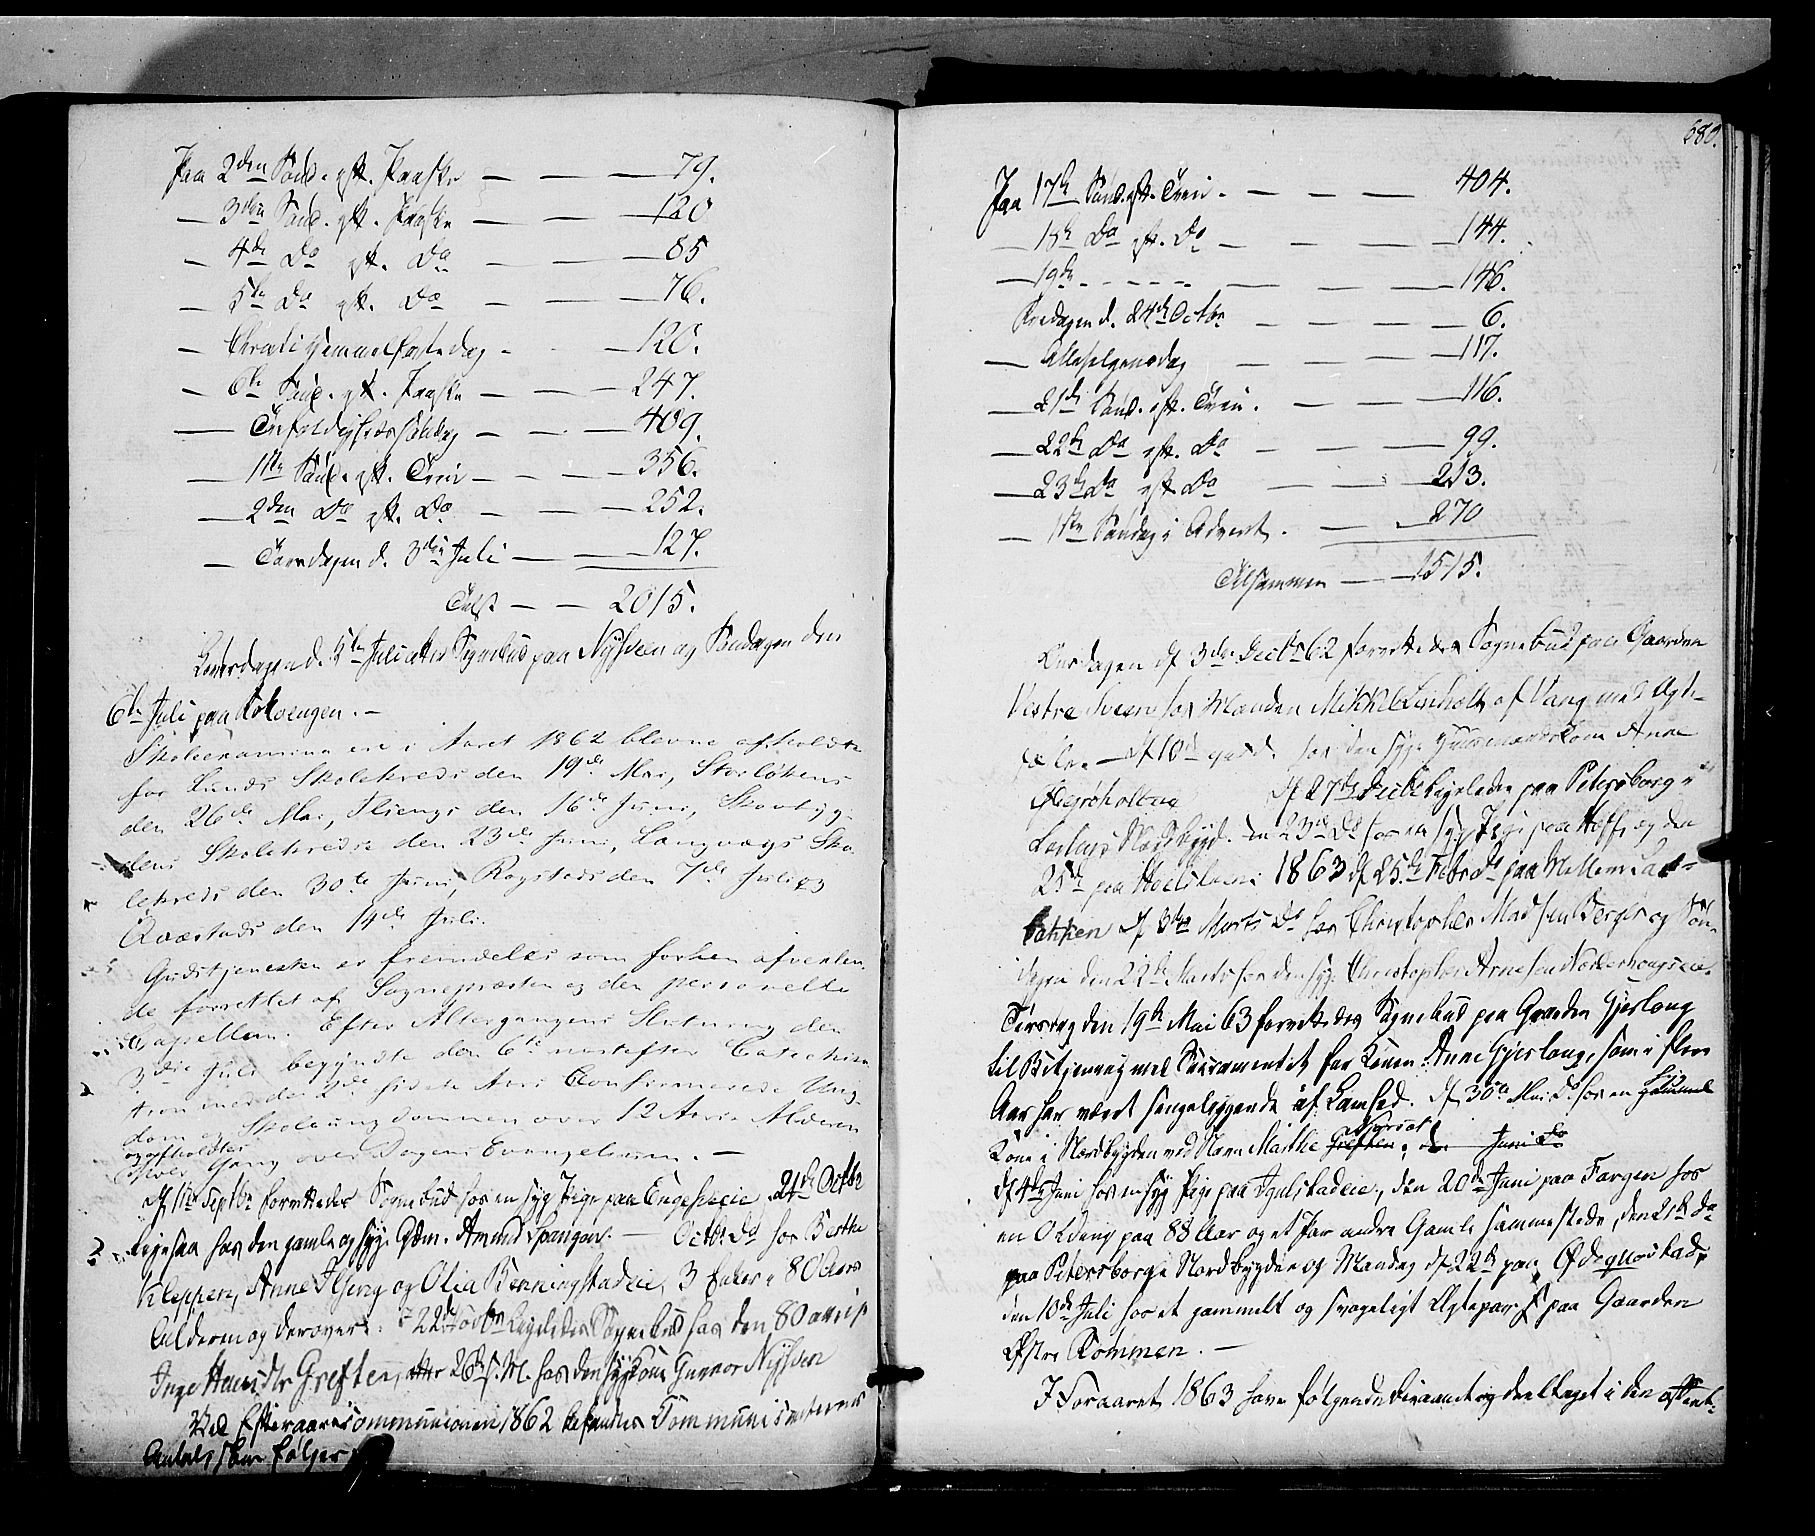 Paa 2den Sønd. eft. Paaske — — — 79.
— 3die Sønd. eft. Paaske — — — 120
— 4de Do eft. Do — — — 85
— 5te Do eft. Do — — — 76.
— Christi Himmelfartsdag - - — 120.
— 6te Sønd. eft. Paaske — — — 247.
— Trefoldigheds søndag — — — 409.
— 1ste Sønd. eft. Trin — — — 356.
— 2den Do eft. Do — — — 252.
— Torsdagen d. 3die Juli — — — 127.
Tilsf. — — 2015.
Løverdagen d. 5te Juli atter Sognebud paa Nysveen og Søndagen den
6te Juli paa Kolvengen. —
Skoleexamina ere i Aaret 1862 blevne afholdte
for Lunds Skolekreds den 19de Mai, Storløkens
den 26de Mai, Ilsengs den 16de Juni, Skovbyg-
dens Skolekreds den 23de Juni, Langvægs Sko-
lekreds den 30te Juni, Rogstads den 7de Juli og
Qværstads den 14de Juli.
Gudstjenesten er fremdeles som forhen afvexlen-
de forrettet af Sognepræsten og den personelle
Capellan. Efter Altergangens Slutning den
3die Juli begyndte den 6te næstefter Catechisa-
tion med de 2de sidste Aars Confirmerede Ung-
dom og Skoleungdommen over 12 Aars Alderen
og afholdtes
hver Gang over Dagens Evangelium. —
Df 11te Septbr forrettedes Sognebud hos en syg Pige paa Engeseie, 24de Octbr
ligesaa hos den gamle og syge Gdm. Amund Spangen. — Octbr Do hos Berthe
Kleppen, Anne Ilseng og Olia Benningstadeie, 3 Enker i 80 Aars
Alderen og derover. Df 22de Novbr ligeledes Sognebud hos den 80 aarige
Inge Hansdtr Greften, atter 26de s. M. hos den syge Kone Gunnor Nysveen
Ved Efteraars Communionen 1862 befandtes Communicanternes
Antal, som følger

680.
Paa 17de Sønd. eft. Trin. — — — 404.
— 18de Do eft. Do — — — 144.
— 19de - - - - - — — — 146.
Fredagen d. 24de Octbr — — — 6.
— Allehelgensdag — — — 117.
— 21de Sønd. eft. Trin. — — — 116.
— 22de Do eft. Do — — — 99.
— 23de Do eft. Do — — — 213.
— 1ste Søndag i Advent. — — 270
Tilsammen — — 1515.
Onsdagen df 3die Decbr 62 forrettedes Sognebud paa Gaarden
Vestre Sveen hos Manden Mikkel Lenholt af Vang med Ægte-
fælle — df 10de hos den syge Huusmandskone Anne
Df 27de Decbr ligeledes paa Petersborg i
Nordbygd. den 23de Do hos en syg Pige paa Hoff, og den
25de paa 1863 df 25de Febr. Do paa Mellem
bakken df 3die Marts Do hos Christopher Madsen Berger og Søn
den 22de Marts hos den syge Christopher Arnesen
Tirsdag den 19de Mai 63 forrettedes Sognebud paa Gaarden Gjerlaug
til Betjening med Sacramentet for Konen Anne Gjerlaug, som i flere
Aar har været sengeliggende af Lamhed. Df 30te Mai Do hos en syg gammel
Kone i Nordbygden ved Navn Marthe Greften, den Juni Do
Df 4de Juni hos en syg Pige paa Igelstadeie, den 20de Juni paa Fargen hos
en Olding paa 88 Aar og et Par andre Gamle sammesteds, den 21de Do
paa Petersborg i Nordbygden og Mandag df 22de paa Ødequostad,
den 10de Juli hos et gammelt og svageligt Ægtepar paa Gaarden
Østre Tommen. —
I Foraaret 1863 have følgende Personer deeltaget i den offent-